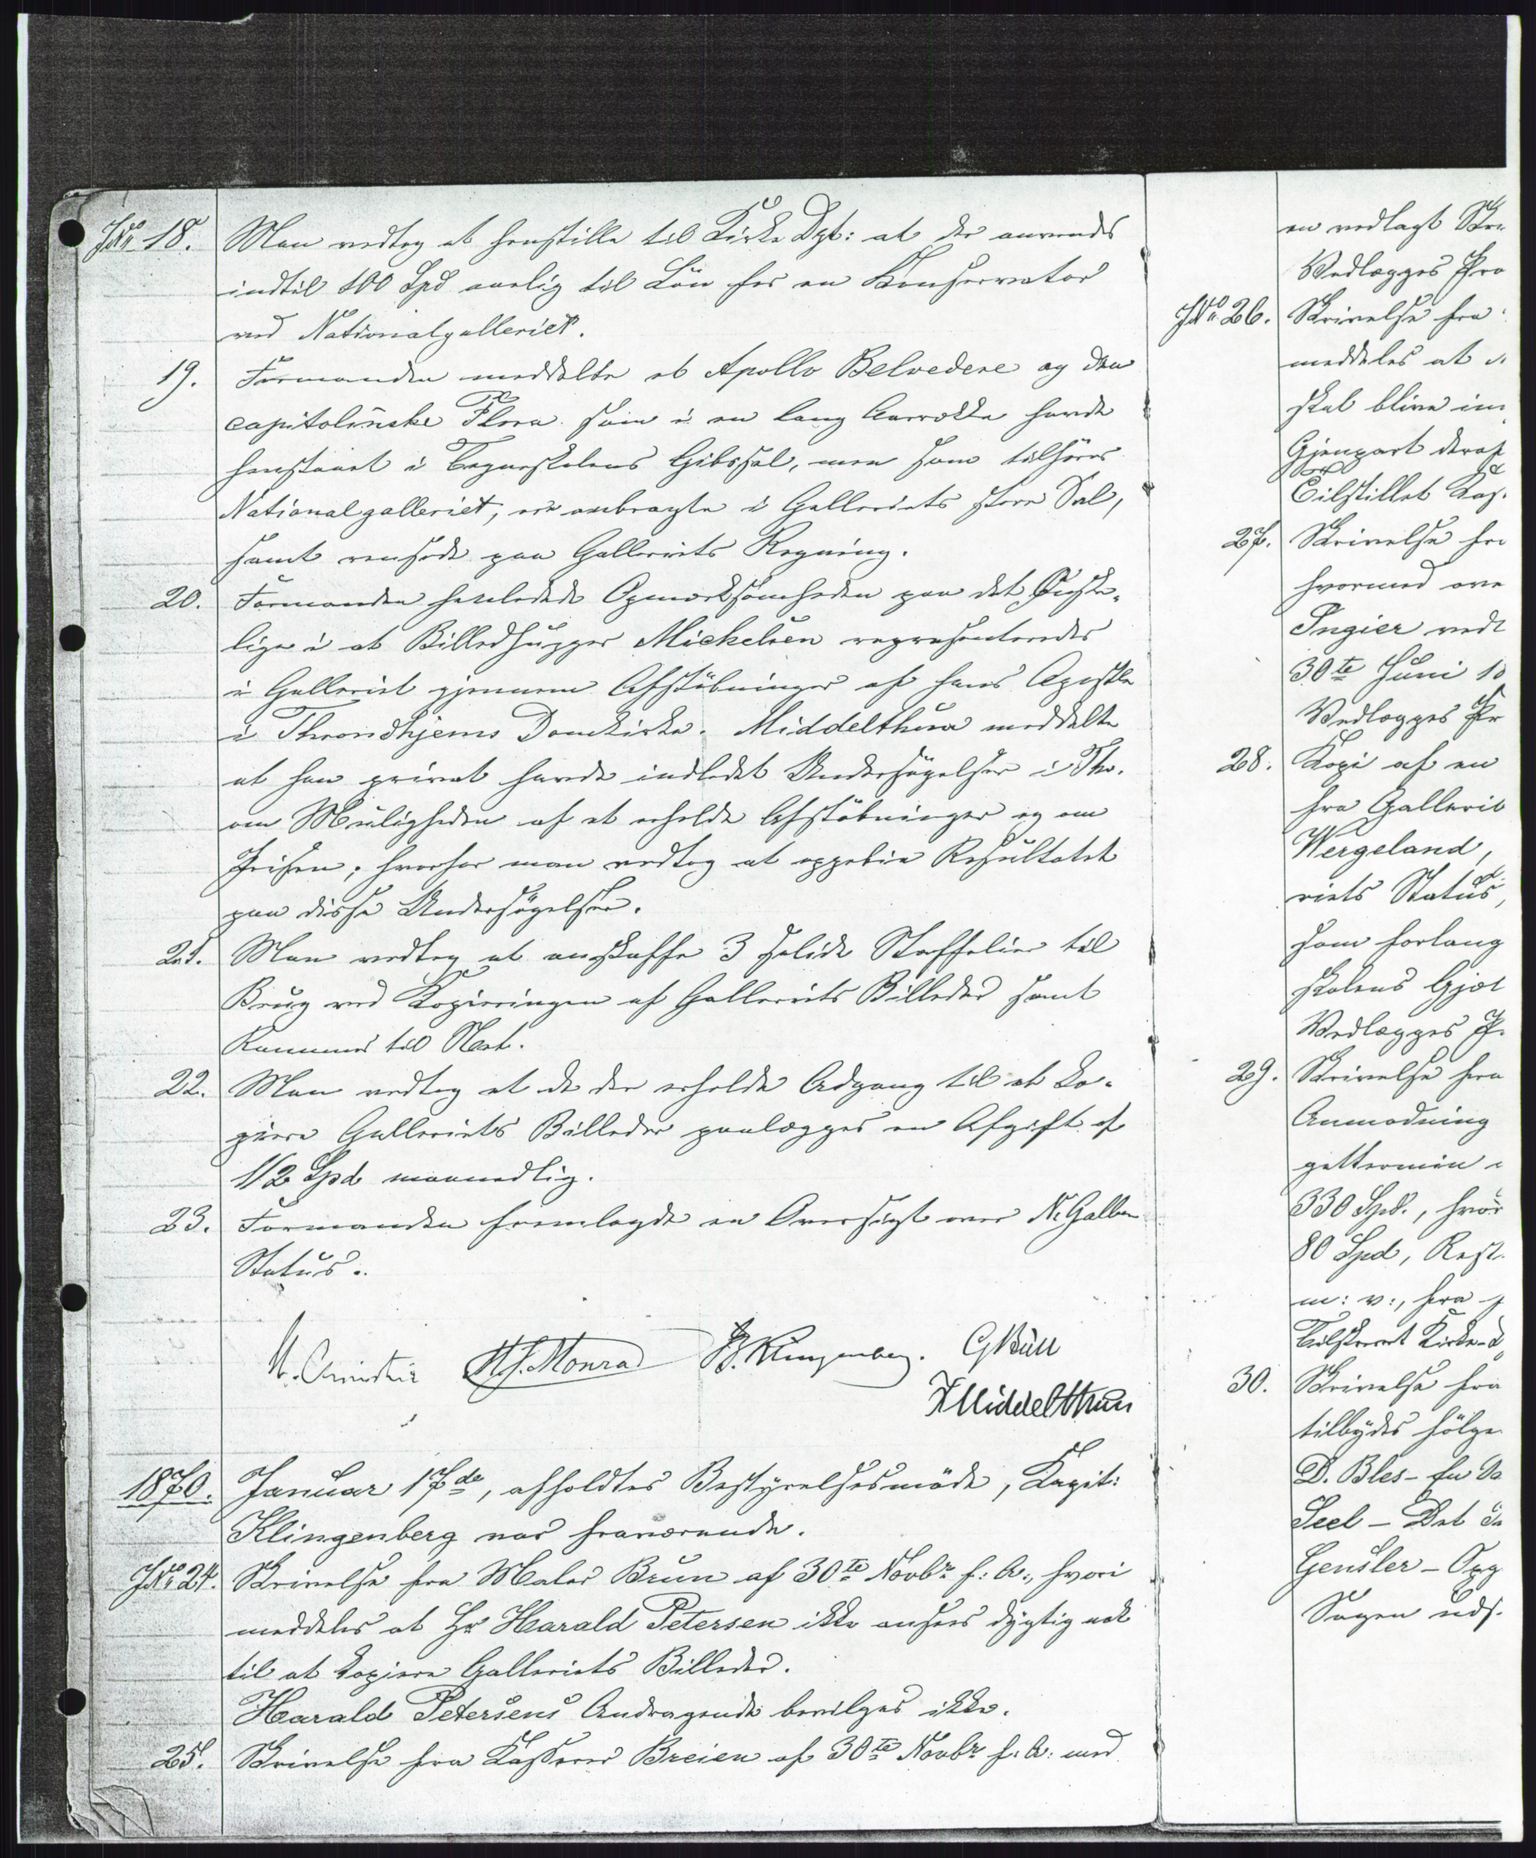 JNr 18. Man vedtog at henstille til Kirke Dpt: at der anvendes
indtil 100 Spd aarlig til Lön for en Konservator
ved Nationalgalleriet.
19. Formanden meddelte at Apollo Belvedere og den
capitolinske Flora som i en lang Aarrække havde
henstaaet i Tegneskolens Gibssal, men som tilhörer
Nationalgalleriet, er anbragte i Galleriets store Sal,
samt rensede paa Galleriets Regning.
20. Formanden henledede Opmærksomheden paa det Önske-
lige i at Billedhugger Michelsen repræsenteredes
i Galleriet gjennem Afstöbninger af hans Apostle
i Throndhjems Domkirke. Middelthun meddelte
at han privat havde indledet Undersögelser i Thr.
om Muligheden af at erholde Afstöbninger og om
Prisen, hvorfor man vedtog at oppebie Resultatet
paa disse Undersögelser.
21. Man vedtog at anskaffe 3 solide Staffelier til
Brug ved Kopieringen af Galleriets Billeder samt
Rammer til
22. Man vedtog at de der erholde Adgang til at ko-
piere Galleriets Billeder paalægges en Afgift af
1/2 Spd maanedlig.
23. Formanden fremlagde en Oversigt over N. Galler
Status.
Christie H. J. Monrad Klingenberg. G Bull
Middelthun
1870. Januar 17de, afholdtes Bestyrelsesmöde, Kapit:
Klingenberg var fraværende.
JNr 24. Skrivelse fra Maler Brun af 30te Novbr f: A:, hvori
meddeles at Hr Harald Petersen ikke ansees dygtig nok
til at kopiere Galleriets Billeder.
Harald Petersens Andragende bevilges ikke.
25. Skrivelse fra Kasserer Breien af 30te Novbr f: A: med
en vedlagt
Vedlægges
JNr 26. Skrivelse fra
meddeles at
skal blive
Gjenpart deraf
Tilstillet
27. Skrivelse
hvormed
Ingier
30te Juni
Vedlægges
28. Kopi af en
fra
Wergeland,
riets Status,
som
skolens
Vedlægges
29. Skrivelse fra
Anmodning
gettermin
330 Spd.,
80 Spd, Rest
m: v:, fra
Tilskrevet Kirke-
30. Skrivelse fra
tilbydes fölge
D. Bles - En
Seel - Det
Gensler - Opg
Sagen uds.